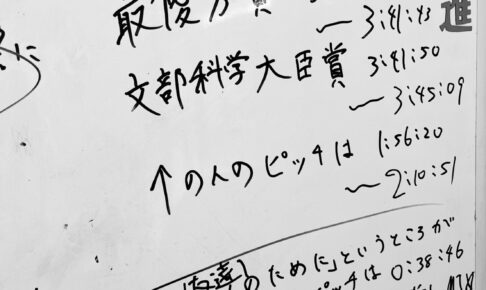 進
に
〜 3:41:43
文部科学大臣賞 3:41:50
〜 3:45:09
↑の人のピッチは 1:56:20
〜 2:10:51
のために」というところが
ピッチは 0:38:46